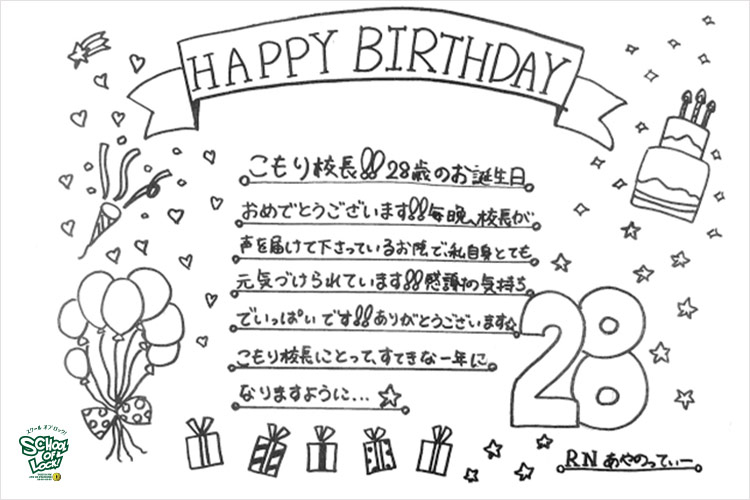 HAPPY BIRTHDAY
こもり校長!! 28歳のお誕生日
おめでとうございます!! 毎晩、校長が
声を届けて下さっているお陰で、私自身とても
元気づけられています!! 感謝の気持ち
でいっぱいです!! ありがとうございます☆
こもり校長にとって、すてきな一年に
なりますように...☆
28
RN あやのってぃー
スクール オブ ロック!
SCHOOL
OF
LOCK!